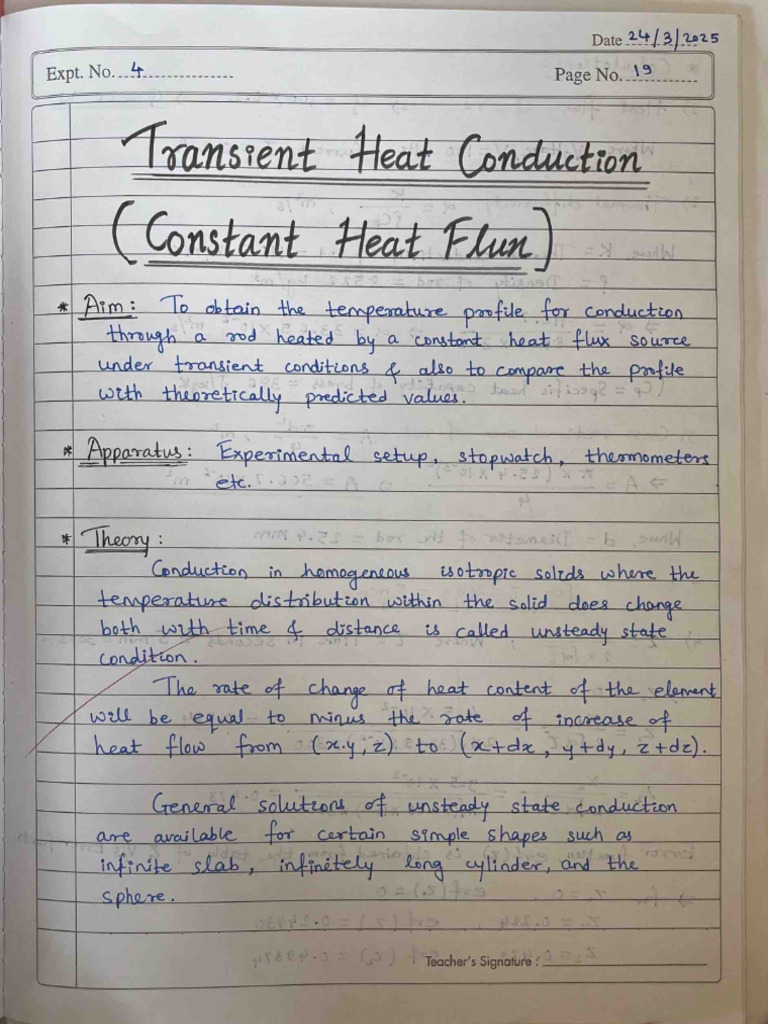 Date 24/3/2025
Expt. No. 4
Page No. 19
Transient Heat Conduction
(Constant Heat Flux)
* Aim: To obtain the temperature profile for conduction
through a rod heated by a constant heat flux source
under transient conditions & also to compare the profile
with theoretically predicted values.
* Apparatus: Experimental setup, stopwatch, thermometers
etc.
* Theory:
Conduction in homogeneous isotropic solids where the
temperature distribution within the solid does change
both with time & distance is called unsteady state
condition.
The rate of change of heat content of the element
will be equal to minus the rate of increase of
heat flow from (x.y, z) to (x+dx, y+dy, z+dz).
General solutions of unsteady state conduction
are available for certain simple shapes such as
infinite slab, infinitely long cylinder, and the
sphere.
Teacher's Signature :